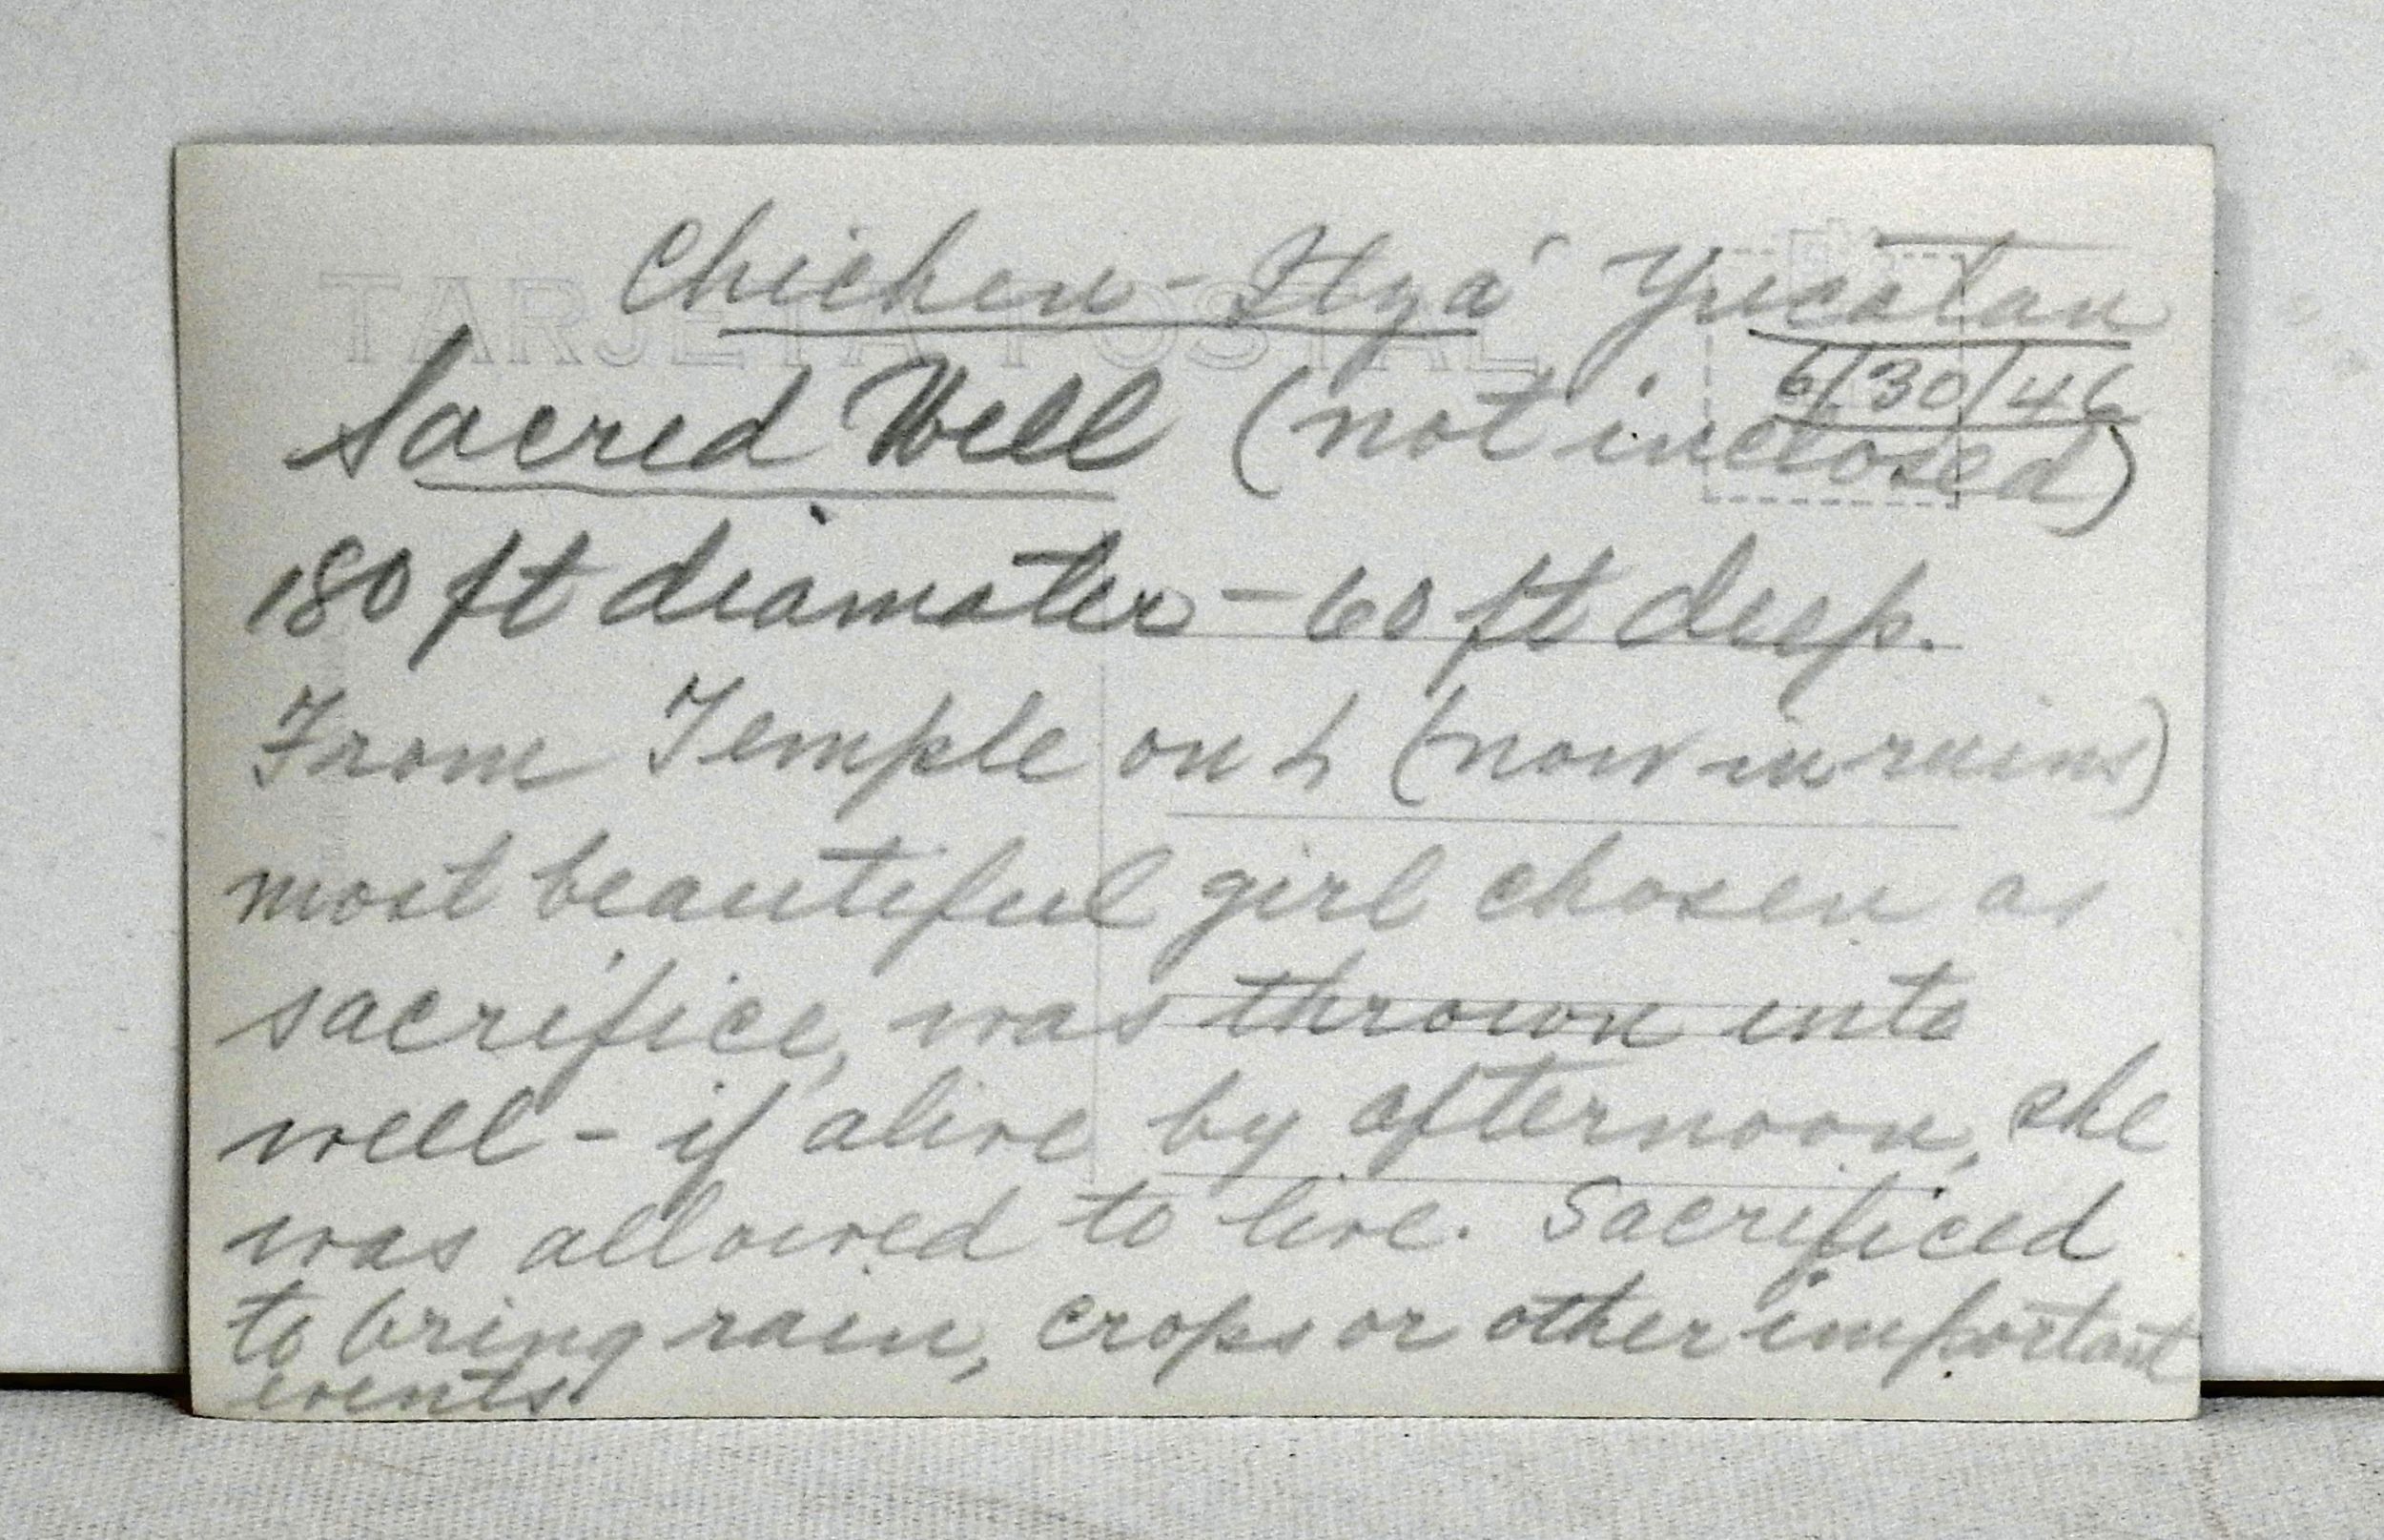 TARJETA POSTAL
Chichen-Itza' Yucatan
6/30/46
Sacred Well (not inclosed)
180 ft diamater - 60 ft deep.
From Temple on L (now in ruins)
most beautiful girl chosen as
sacrifice, was thrown into
well - if alive by afternoon, she
was allowed to live. Sacrificed
to bring rain, crops or other important
events.